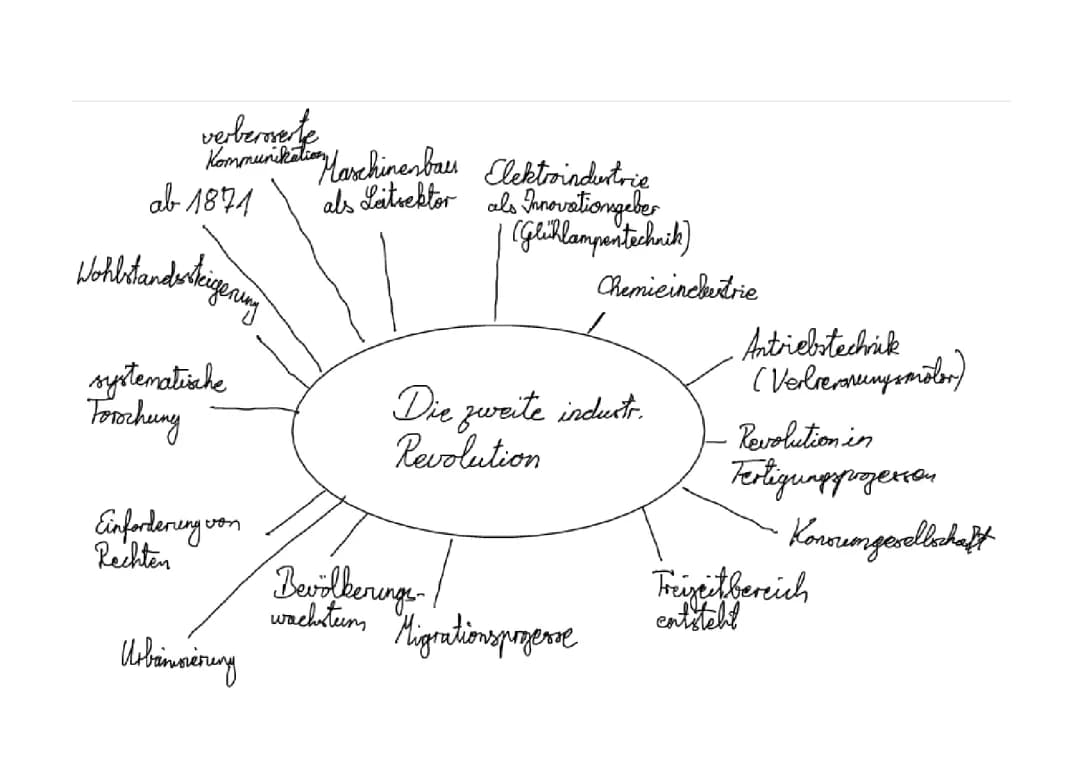 verbesserte
Kommunikation
ab 1871
Maschinenbau
als Leitsektor
Elektroindustrie
als Innovationsgeber
(Glühlampentechnik)
Wohlstandssteigerung
Chemieindustrie
Antriebstechnik
(Verbrennungsmotor)
systematische
Forschung
Die zweite industr.
Revolution
Revolution in
Fertigungsprozessen
Einforderung von
Rechten
Konsumgesellschaft
Bevölkerungs-
wachstum
Migrationsprozesse
Freizeitbereich
entsteht
Urbanisierung